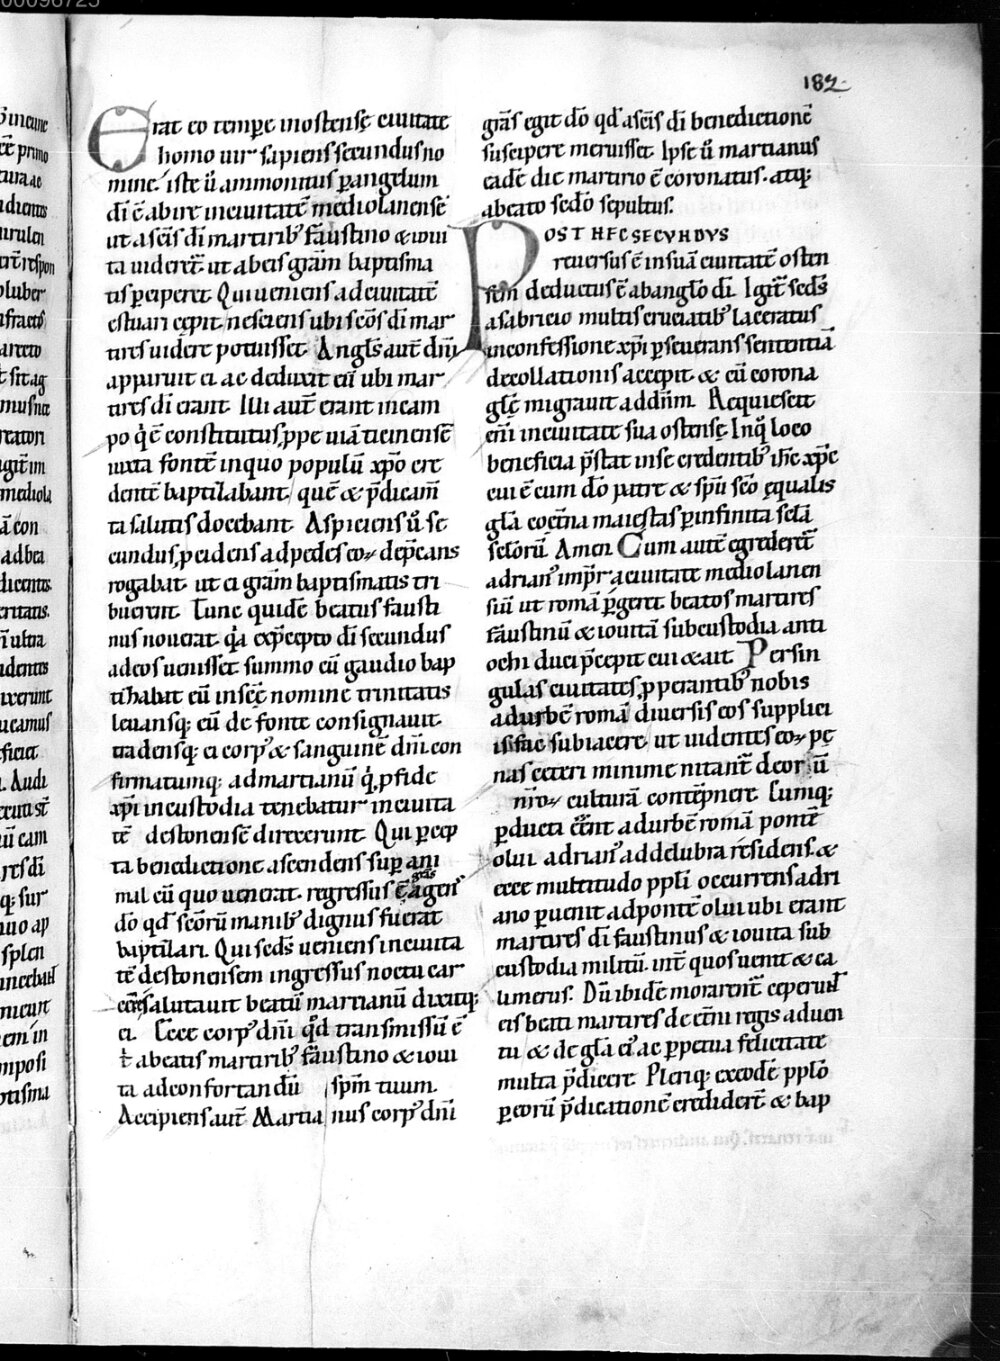 182
Erat eo tempe inostensę ciuitate
homo uir sapiens secundus no
mine. iste ū ammonitus p angelum
dī ē abire inciuitatē mediolanensē
ut a scīs dī martirib; faustino & ioui
ta uiderēt ut abeis grām baptisma
tis pciperet. Qui ueniens adciuitatē
estuari cępit. nesciens ubi scōs dī mar
tires uidere potuisset. Angls aut dnī
apparuit ei ac deduxit eū ubi mar
tires dī erant. Illi aut erant incam
po q' ē constitutus ppe uiā ticinensē
iuxta fontē inquo populū xpo cre
dentē baptizabant. quē & pdicam
ta salutis docebant. Aspiciens ū se
cundus, pcidens adpedes eoꝝ depcans
rogabat ut ei grām baptismatis tri
buerent. Tunc quidē beatus fausti
nus nouerat. qa exp̄cepto dī secundus
adeos uenisset. summo cū gaudio bap
tizabat eū inscę nomine trinitatis
leuansq; eū de fonte consignauit.
tradensq; ei corp' & sanguinē dnī con
firmatumq; admartianū q', pfide
xpi incustodia tenebatur inciuita
tē destonensē direxerunt. Qui pcep
ta benedictione ascendens sup ani
mal cū quo uenerat. regressus ē gr̄as agens
dō qd scōrū manib; dignus fuerat
baptizari. Qui secds ueniens inciuita
tē destonensem ingressus noctu car
cerē salutauit beatū martianū dixitq;
ei. Ecce corp' dnī qd transmissū ē
t' abeatis martirib; faustino & ioui
ta adconfortandū spm tuum.
Accipiens aut Martianus corp' dnī
grās egit dō qd ascīs dī benedictionē
suscipere meruisset. Ipse ū martianus
eadē die martirio ē coronatus. atq;
abeato secdo sepultus.
POST HEC SECVNDVS
reuersus ē insuā ciuitatē osten
sem deductus ē abanglo dī. Igit secds
asabricio multis cruciatib; laceratus
inconfessione xpi pseuerans sententiā
decollationis accepit. & cū corona
glę migrauit addnm. Requiescit
enī inciuitate sua ostensę Inq loco
beneficia pstat inse credentib; ihc xpc
cui ē cum dō patre & spū scō ęqualis
gla coetna maiestas p infinita scla
sclorū. Amen. Cum autē egrederet
adrian' impr aciuitate mediolanen
siū ut romā pgeret. beatos martires
faustinū & iouitā subcustodia anti
ochi duci pcepit cui & ait. Persin
gulas ciuitates, pperantib; nobis
adurbē romā diuersis eos supplici
is fac subiacere. ut uidentes eoꝝ pę
nas ceteri minime nitant deorū
nroꝝ culturā contēpnere. Cumq;
pducti eēnt adurbē romā pontē
olui adrian' addelubra residens. &
ecce multitudo ppli occurrens adri
ano puenit adpontē olui ubi erant
martires dī faustinus & iouita sub
custodia militū. int quos uenit & ca
lumerus. Dū ibidē morarent ceperunt
eis beati martires de etni regis aduen
tu & de gla ei' ac ppetua felicitate
multa pdicere. Pleriq; exeodē pplo
peorū pdicationē credidert & bap